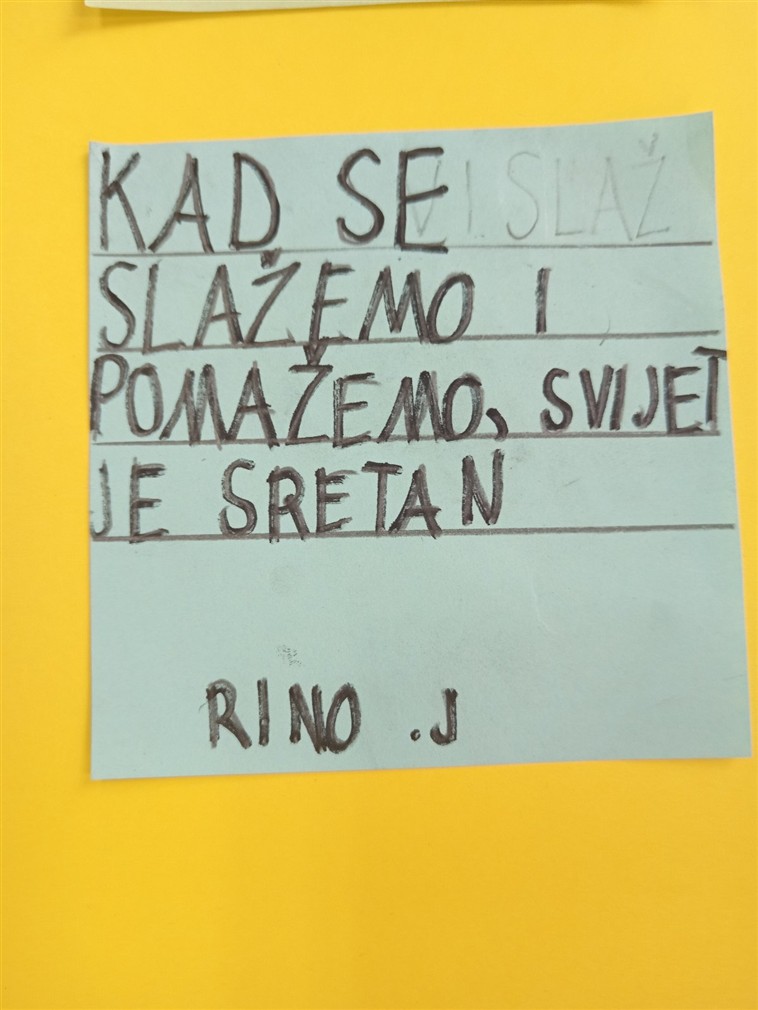 KAD SE VI SLAŽ
SLAŽEMO I
POMAŽEMO, SVIJET
JE SRETAN
RINO .J